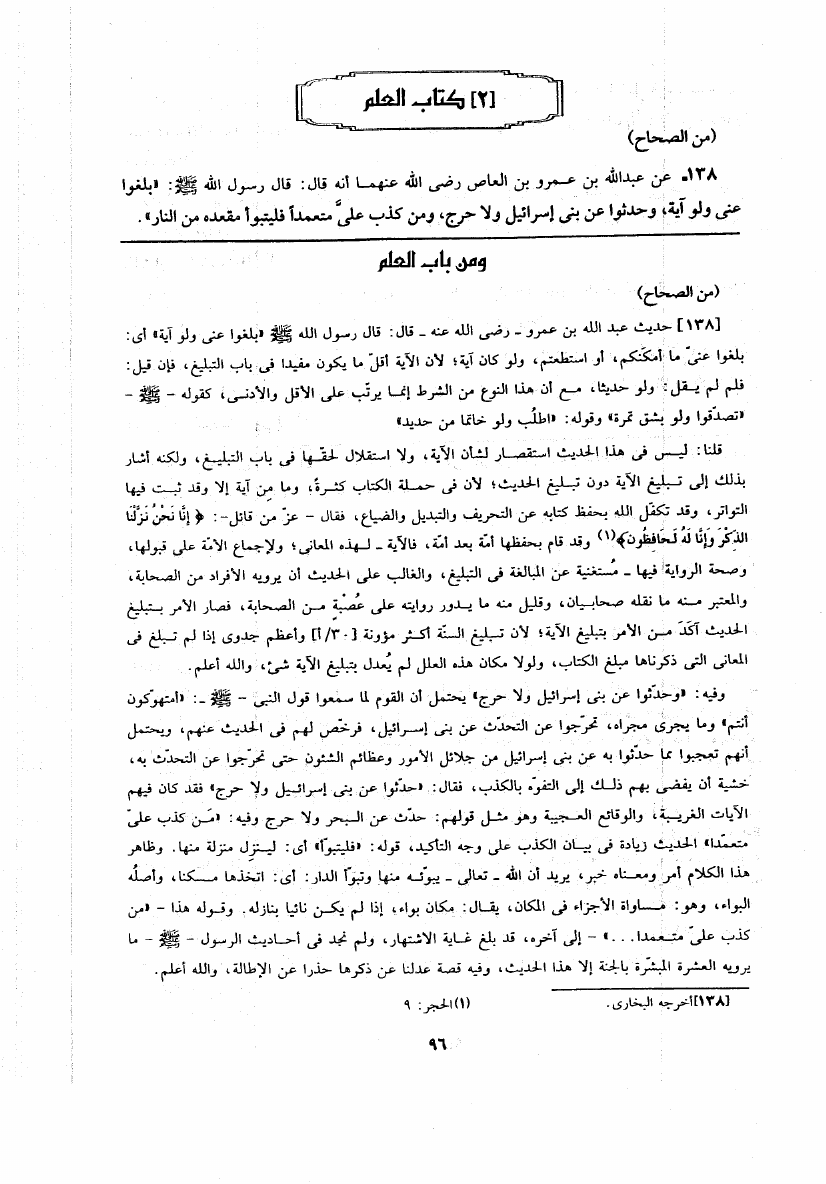 [٢] كتاب العلم
(من الصحاح)
١٣٨ـ عن عبدالله بن عمرو بن العاص رضى الله عنهما أنه قال: قال رسول الله ﷺ: «بلغوا
عنى ولو آية، وحدثوا عن بنى إسرائيل ولا حرج، ومن كذب علىَّ متعمداً فليتبوأ مقعده من النار».
ومن باب العلم
(من الصحاح)
[١٣٨] حديث عبد الله بن عمرو ـ رضى الله عنه ـ قال: قال رسول الله ﷺ «بلغوا عنى ولو آية» أى:
بلغوا عنىّ ما أمكنكم، أو استطعتم، ولو كان آية؛ لأن الآية أقلّ ما يكون مفيدا فى باب التبليغ، فإن قيل:
فلم لم يقل: ولو حديثا، مع أن هذا النوع من الشرط إنما يرتّب على الأقل والأدنى، كقوله – ﷺ –
«تصدّقوا ولو بشق تمرة» وقوله: «اطلُب ولو خاتما من حديد»
قلنا: ليس فى هذا الحديث استقصار لشأن الآية، ولا استقلال لحقّها فى باب التبليغ، ولكنه أشار
بذلك إلى تبليغ الآية دون تبليغ الحديث؛ لأن فى حملة الكتاب كثرةً، وما من آية إلا وقد ثبت فيها
التواتر، وقد تكفّل الله بحفظ كتابه عن التحريف والتبديل والضياع، فقال – عزّ من قائل–: ﴿إِنَّا نَحْنُ نَزَّلْنَا
الذِّكْرَ وَإِنَّا لَهُ لَحَافِظُون﴾(١) وقد قام بحفظها أمّة بعد أمة، فالآية ـ لهذه المعانى؛ ولإجماع الأمّة على قبولها،
وصحة الرواية فيها ـ مُستغنية عن المبالغة فى التبليغ، والغالب على الحديث أن يرويه الأفراد من الصحابة،
والمعتبر منه ما نقله صحابيان، وقليل منه ما يدور روايته على عُصْبة من الصحابة، فصار الأمر بتبليغ
الحديث آكدَ من الأمر بتبليغ الآية؛ لأن تبليغ السنّة أكثر مؤونة [٣٠/أ] وأعظم جدوى إذا لم تبلغ فى
المعانى التى ذكرناها مبلغ الكتاب، ولولا مكان هذه العلل لم يُعدل بتبليغ الآية شئ، والله أعلم.
وفيه: «وحدّثوا عن بنى إسرائيل ولا حرج» يحتمل أن القوم لما سمعوا قول النبى – ﷺ ـ: «أمتهوّكون
أنتم» وما يجرى مجراه، تحرّجوا عن التحدّث عن بنى إسرائيل، فرخّص لهم فى الحديث عنهم، ويحتمل
أنهم تعجبوا مما حدّثوا به عن بنى إسرائيل من جلائل الأمور وعظائم الشئون حتى تحرّجوا عن التحدّث به،
خشية أن يفضى بهم ذلك إلى التفوّه بالكذب، فقال: «حدّثوا عن بنى إسرائيل ولا حرج» فقد كان فيهم
الآيات الغريبة، والوقائع العجيبة وهو مثل قولهم: حدّث عن البحر ولا حرج وفيه: «مَن كذب علىّ
متعمّدا» الحديث زيادة فى بيان الكذب على وجه التأكيد، قوله: «فليتبوّأ» أى: لينزل منزلة منها. وظاهر
هذا الكلام أمر ومعناه خبر، يريد أن الله ـ تعالى ـ يبوّئه منها وتبوّأ الدار: أى: اتخذها مسكنا، وأصلُه
البواء، وهو: مساواة الأجزاء فى المكان، يقال: مكان بواء؛ إذا لم يكن نائيا بنازله. وقوله هذا – «من
كذب علىّ متعمدا...» – إلى آخره، قد بلغ غاية الاشتهار، ولم نجد فى أحاديث الرسول – ﷺ – ما
يرويه العشرة المبشّرة بالجنة إلا هذا الحديث، وفيه قصة عدلنا عن ذكرها حذرا عن الإطالة، والله أعلم.
[١٣٨] أخرجه البخارى. (١) الحجر: ٩
٩٦